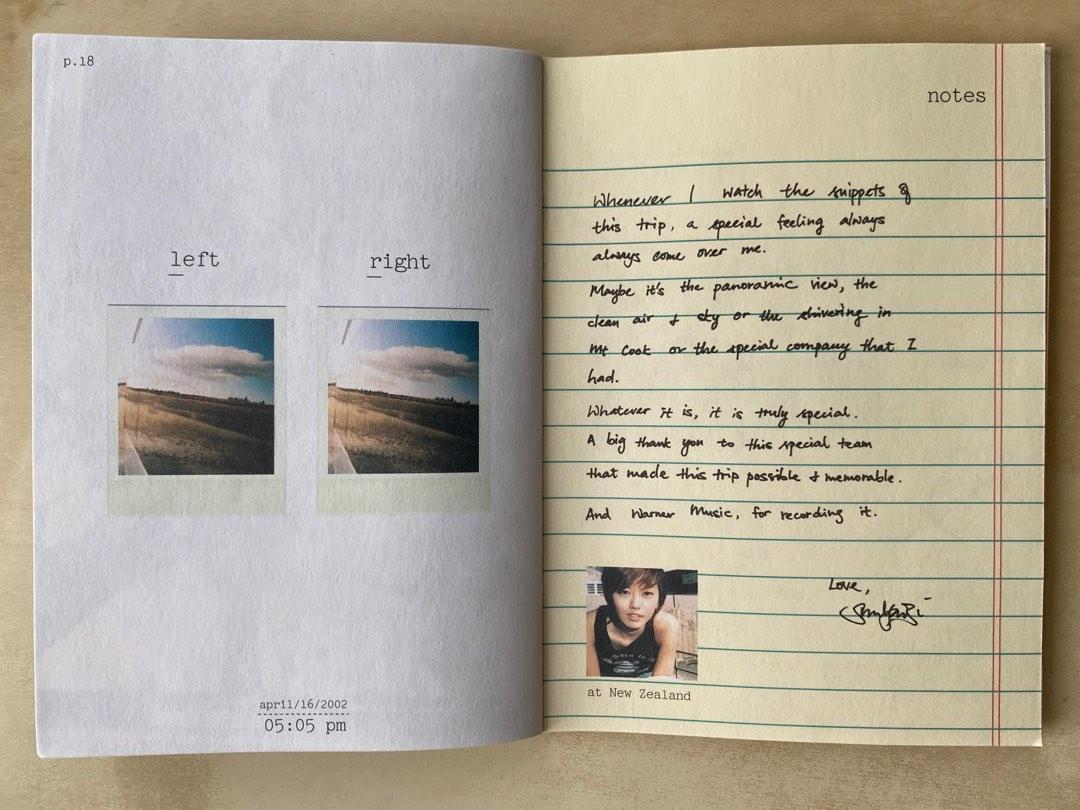 p.18
left
right
april/16/2002
05:05 pm
notes
Whenever I watch the snippets of
this trip, a special feeling always
always come over me.
Maybe it's the panoramic view, the
clean air & sky or the shivering in
Mt Cook or the special company that I
had.
Whatever it is, it is truly special.
A big thank you to this special team
that made this trip possible & memorable.
And Warner Music, for recording it.
Love,
at New Zealand